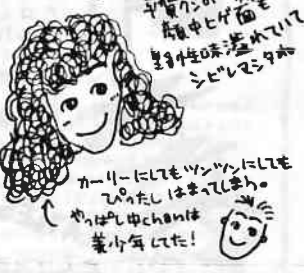 顔中ヒゲ面も
野性味溢れていて
シビレマシタ
カーリーにしてもツンツンにしても
ぴったし はまってしまう。
やっぱし中chanは
美少年してた!